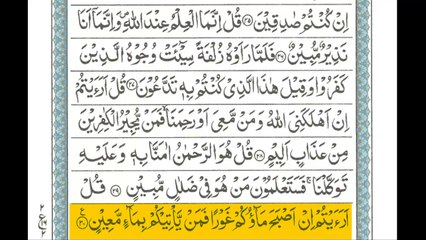 اِنْ كُنْتُمْ صٰدِقِيْنَ ﴿۲۵﴾ قُلْ اِنَّمَا الْعِلْمُ عِنْدَ اللّٰهِ ۪ وَاِنَّمَاۤ اَنَا
نَذِيْرٌ مُّبِيْنٌ ﴿۲۶﴾ فَلَمَّا رَاَوْهُ زُلْفَةً سِيْٓـَٔتْ وُجُوْهُ الَّذِيْنَ
كَفَرُوْا وَقِيْلَ هٰذَا الَّذِيْ كُنْتُمْ بِهٖ تَدَّعُوْنَ ﴿۲۷﴾ قُلْ اَرَءَيْتُمْ
اِنْ اَهْلَكَنِيَ اللّٰهُ وَمَنْ مَّعِيَ اَوْ رَحِمَنَا ۙ فَمَنْ يُّجِيْرُ الْكٰفِرِيْنَ
مِنْ عَذَابٍ اَلِيْمٍ ﴿۲۸﴾ قُلْ هُوَ الرَّحْمٰنُ اٰمَنَّا بِهٖ وَعَلَيْهِ
تَوَكَّلْنَا ۚ فَسَتَعْلَمُوْنَ مَنْ هُوَ فِيْ ضَلٰلٍ مُّبِيْنٍ ﴿۲۹﴾ قُلْ
اَرَءَيْتُمْ اِنْ اَصْبَحَ مَآؤُكُمْ غَوْرًا فَمَنْ يَّاْتِيْكُمْ بِمَآءٍ مَّعِيْنٍ ﴿۳۰﴾